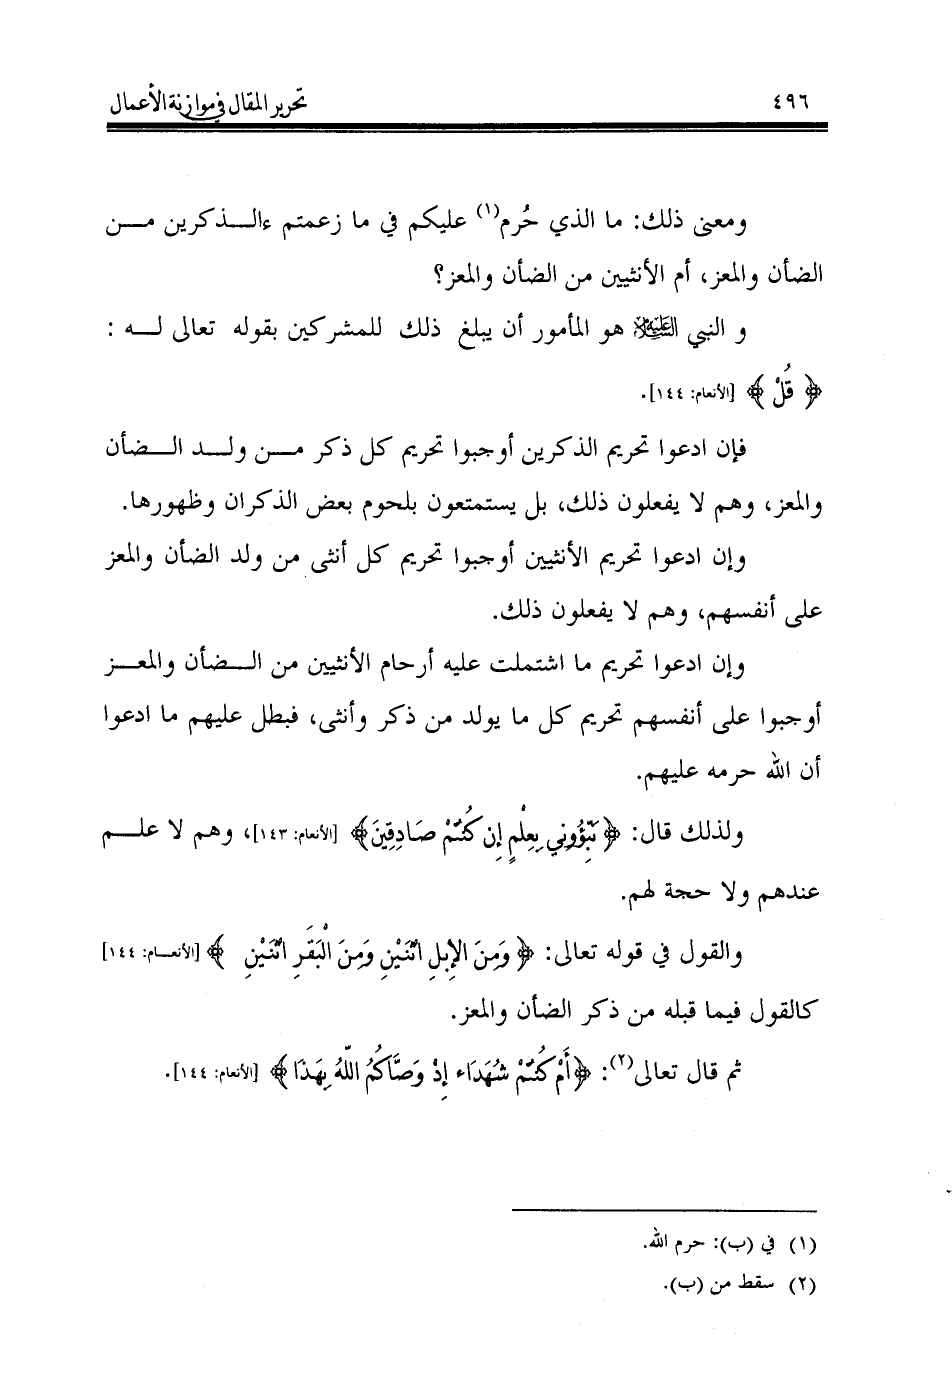 ٤٩٦ تحرير المقال في موازنة الأعمال
ومعنى ذلك: ما الذي حُرم(١) عليكم في ما زعمتم ءالـذكرين مـن
الضأن والمعز، أم الأنثيين من الضأن والمعز؟
و النبي عليه السلام هو المأمور أن يبلغ ذلك للمشركين بقوله تعالى لـه :
﴿ قُلْ ﴾ [الأنعام: ١٤٤].
فإن ادعوا تحريم الذكرين أوجبوا تحريم كل ذكر مـن ولـد الـضأن
والمعز، وهم لا يفعلون ذلك، بل يستمتعون بلحوم بعض الذكران وظهورها.
وإن ادعوا تحريم الأنثيين أوجبوا تحريم كل أنثى من ولد الضأن والمعز
على أنفسهم، وهم لا يفعلون ذلك.
وإن ادعوا تحريم ما اشتملت عليه أرحام الأنثيين من الـضأن والمعـز
أوجبوا على أنفسهم تحريم كل ما يولد من ذكر وأنثى، فبطل عليهم ما ادعوا
أن الله حرمه عليهم.
ولذلك قال: ﴿ نَبِّؤُونِي بِعِلْمٍ إِن كُنتُمْ صَادِقِينَ﴾ [الأنعام: ١٤٣]، وهم لا علـم
عندهم ولا حجة لهم.
والقول في قوله تعالى: ﴿ وَمِنَ الإِبِلِ اثْنَيْنِ وَمِنَ الْبَقَرِ اثْنَيْنِ ﴾ [الأنعـام: ١٤٤]
كالقول فيما قبله من ذكر الضأن والمعز.
ثم قال تعالى(٢): ﴿أَمْ كُنتُمْ شُهَدَاء إِذْ وَصَّاكُمُ اللّهُ بِهَذَا ﴾ [الأنعام: ١٤٤].
(١) في (ب): حرم الله.
(٢) سقط من (ب).